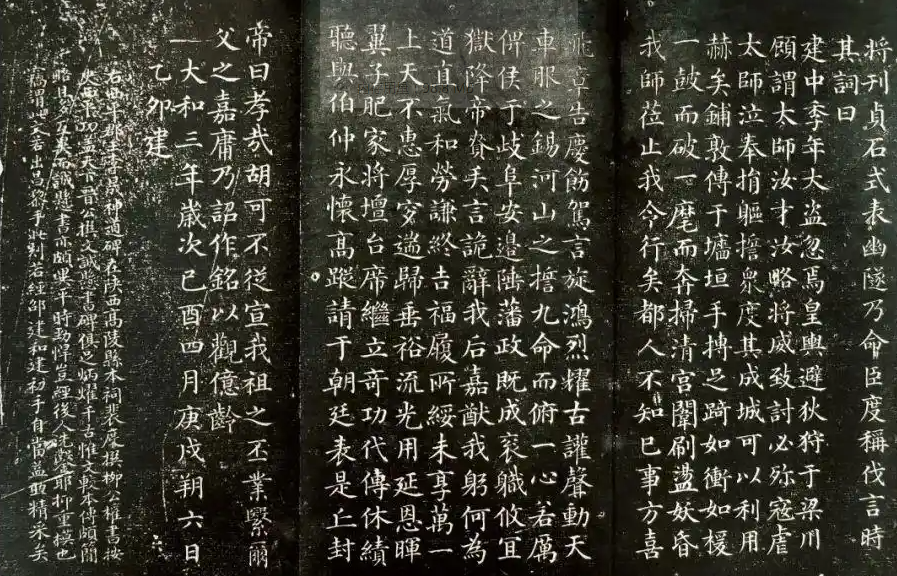 將刊貞石式表幽隧乃命臣度稱伐言時
其詞曰
建中季年大盜忽焉皇輿避狄狩于梁川
顧謂太師汝才汝略將威致討必殄寇虐
太師泣奉揃軀擔衆度其成城可以利用
赫矣鋪敦傅于墉垣手搏足踦如衝如楥
一鼓而破一麾而奔掃清宮闈刷盪妖昏
我師莅止我今行矣都人不知巳事方喜
飛章告慶飭駕言旋鴻烈耀古讙聲動天
車服之錫河山之誓九命而俯一心若厲
俾侯于歧阜安邊陲藩政既成袞職攸宜
獄降帝賚丟言詭辭我后嘉猷我躬何為
道直氣和勞謙終吉福履所綏未享萬一
上天不惠厚穸遄歸垂裕流光用延恩暉
翼子肥家將壇台席繼立奇功代傳休績
聽與伯仲永懷高蹤請于朝廷表是丘封
帝曰孝哉胡可不從宣我祖之丕業緊爾
父之嘉庸乃詔作銘以觀億齡
一大和三年嵗次己酉四月庚戌朔六日
乙卯建
右西平郡王李晟神道碑在陝西高陵縣本祠裴度撰柳公權書按
六